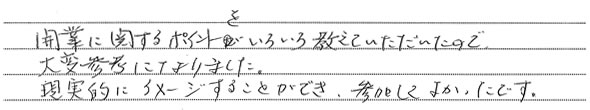 開業に関するポイントをいろいろ教えていただいたので、
大変参考になりました。
現実的にイメージすることができ、参加してよかったです。